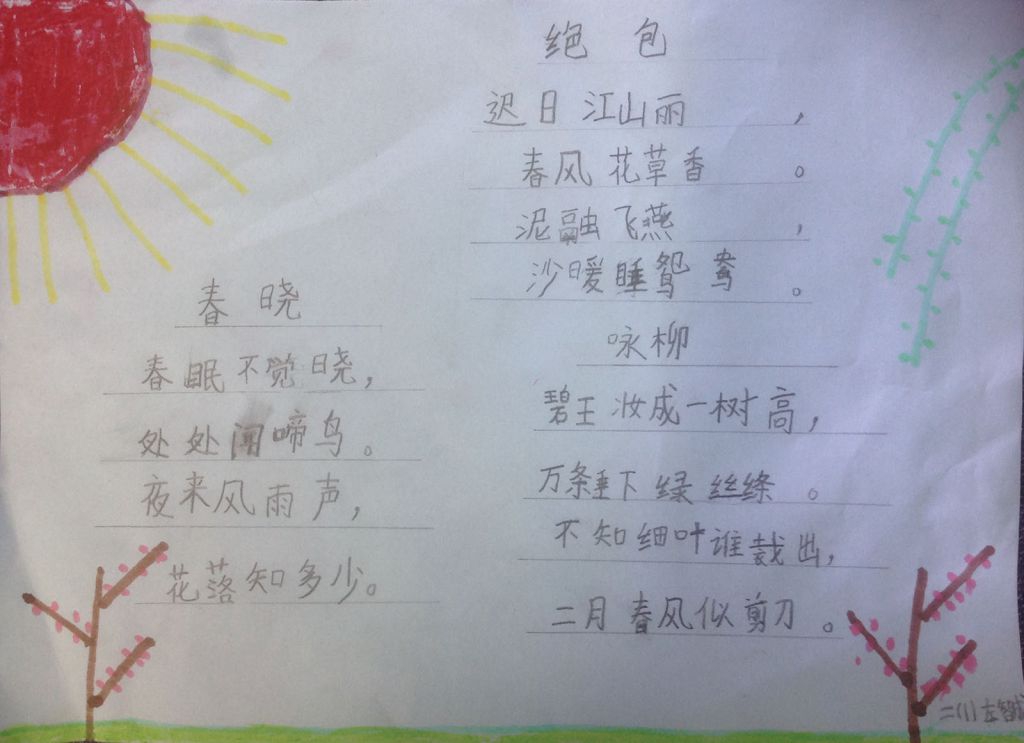 春晓
春眠不觉晓，
处处闻啼鸟。
夜来风雨声，
花落知多少。
绝包
迟日江山丽，
春风花草香。
泥融飞燕，
沙暖睡鸳鸯。
咏柳
碧王妆成一树高，
万条垂下绿丝绦。
不知细叶谁裁出，
二月春风似剪刀。
二(1)左智